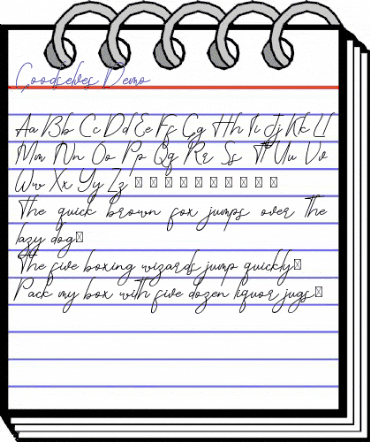 Goodselves Demo
Aa Bb Cc Dd Ee Ff Gg Hh Ii Jj Kk Ll
Mm Nn Oo Pp Qq Rr Ss Tt Uu Vv
Ww Xx Yy Zz
The quick brown fox jumps over the
lazy dog
The five boxing wizards jump quickly
Pack my box with five dozen liquor jugs